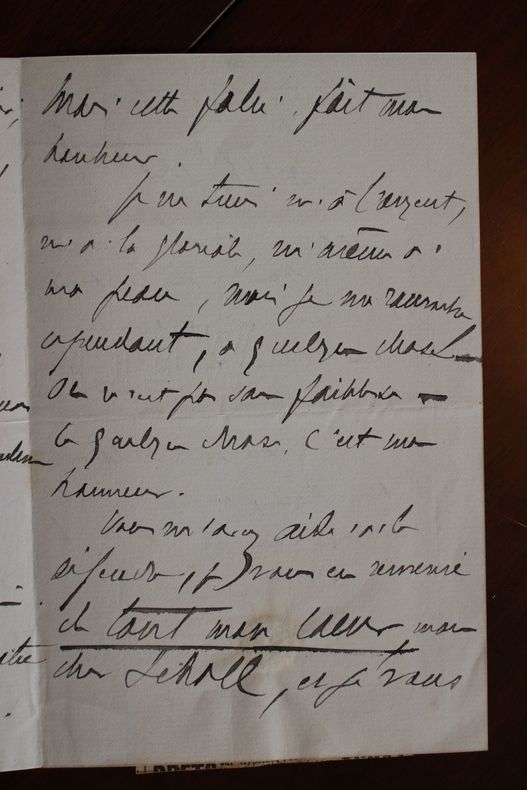 Mais cette folie, fait mon
bonheur.
Je ne tiens ni à l'argent,
ni à la gloriole, ni même à
ma peau, mais je me raccroche
cependant, à quelque chose
On n'est pas sans faiblesse —
Ce quelque chose, c'est mon
honneur.
Vous m'avez aidé à le
défendre, je vous en remercie
de tout mon coeur, mon
cher Scholl, et je vous